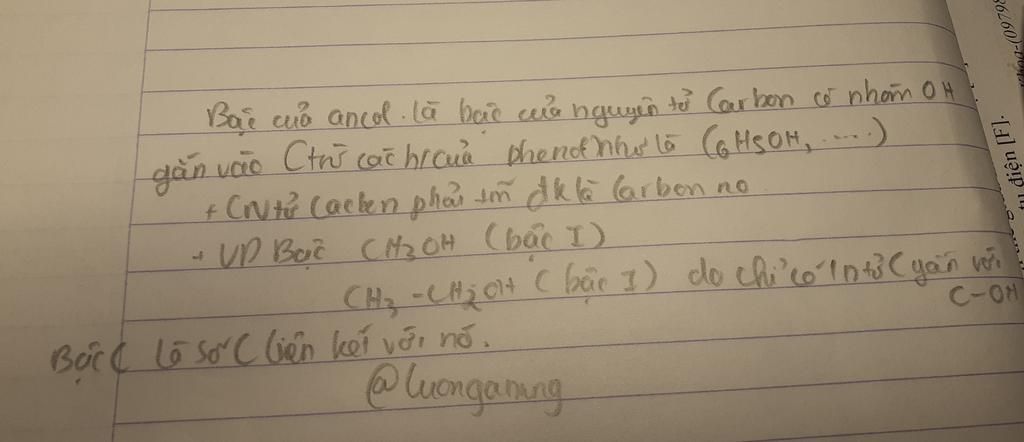 Bậc cuả ancol. là bậc cuả nguyên tử Carbon có nhóm OH
gắn vào C trừ các h/c cuả phenol như là (C6H5OH, .....)
+ (Ntử Cacbon phải tm đk là Carbon no
+ VD Bậc CH3OH (bậc I)
CH3 - CH2OH (bậc I) do chỉ có 1 ntử C gắn với
C-OH
Bậc C là số C liên kết với nó.
@luonganung
(0979
tụ điện [F].